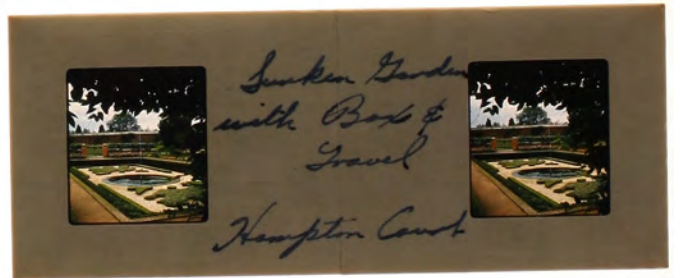 Sunken Garden
with Box &
Gravel
Hampton Court